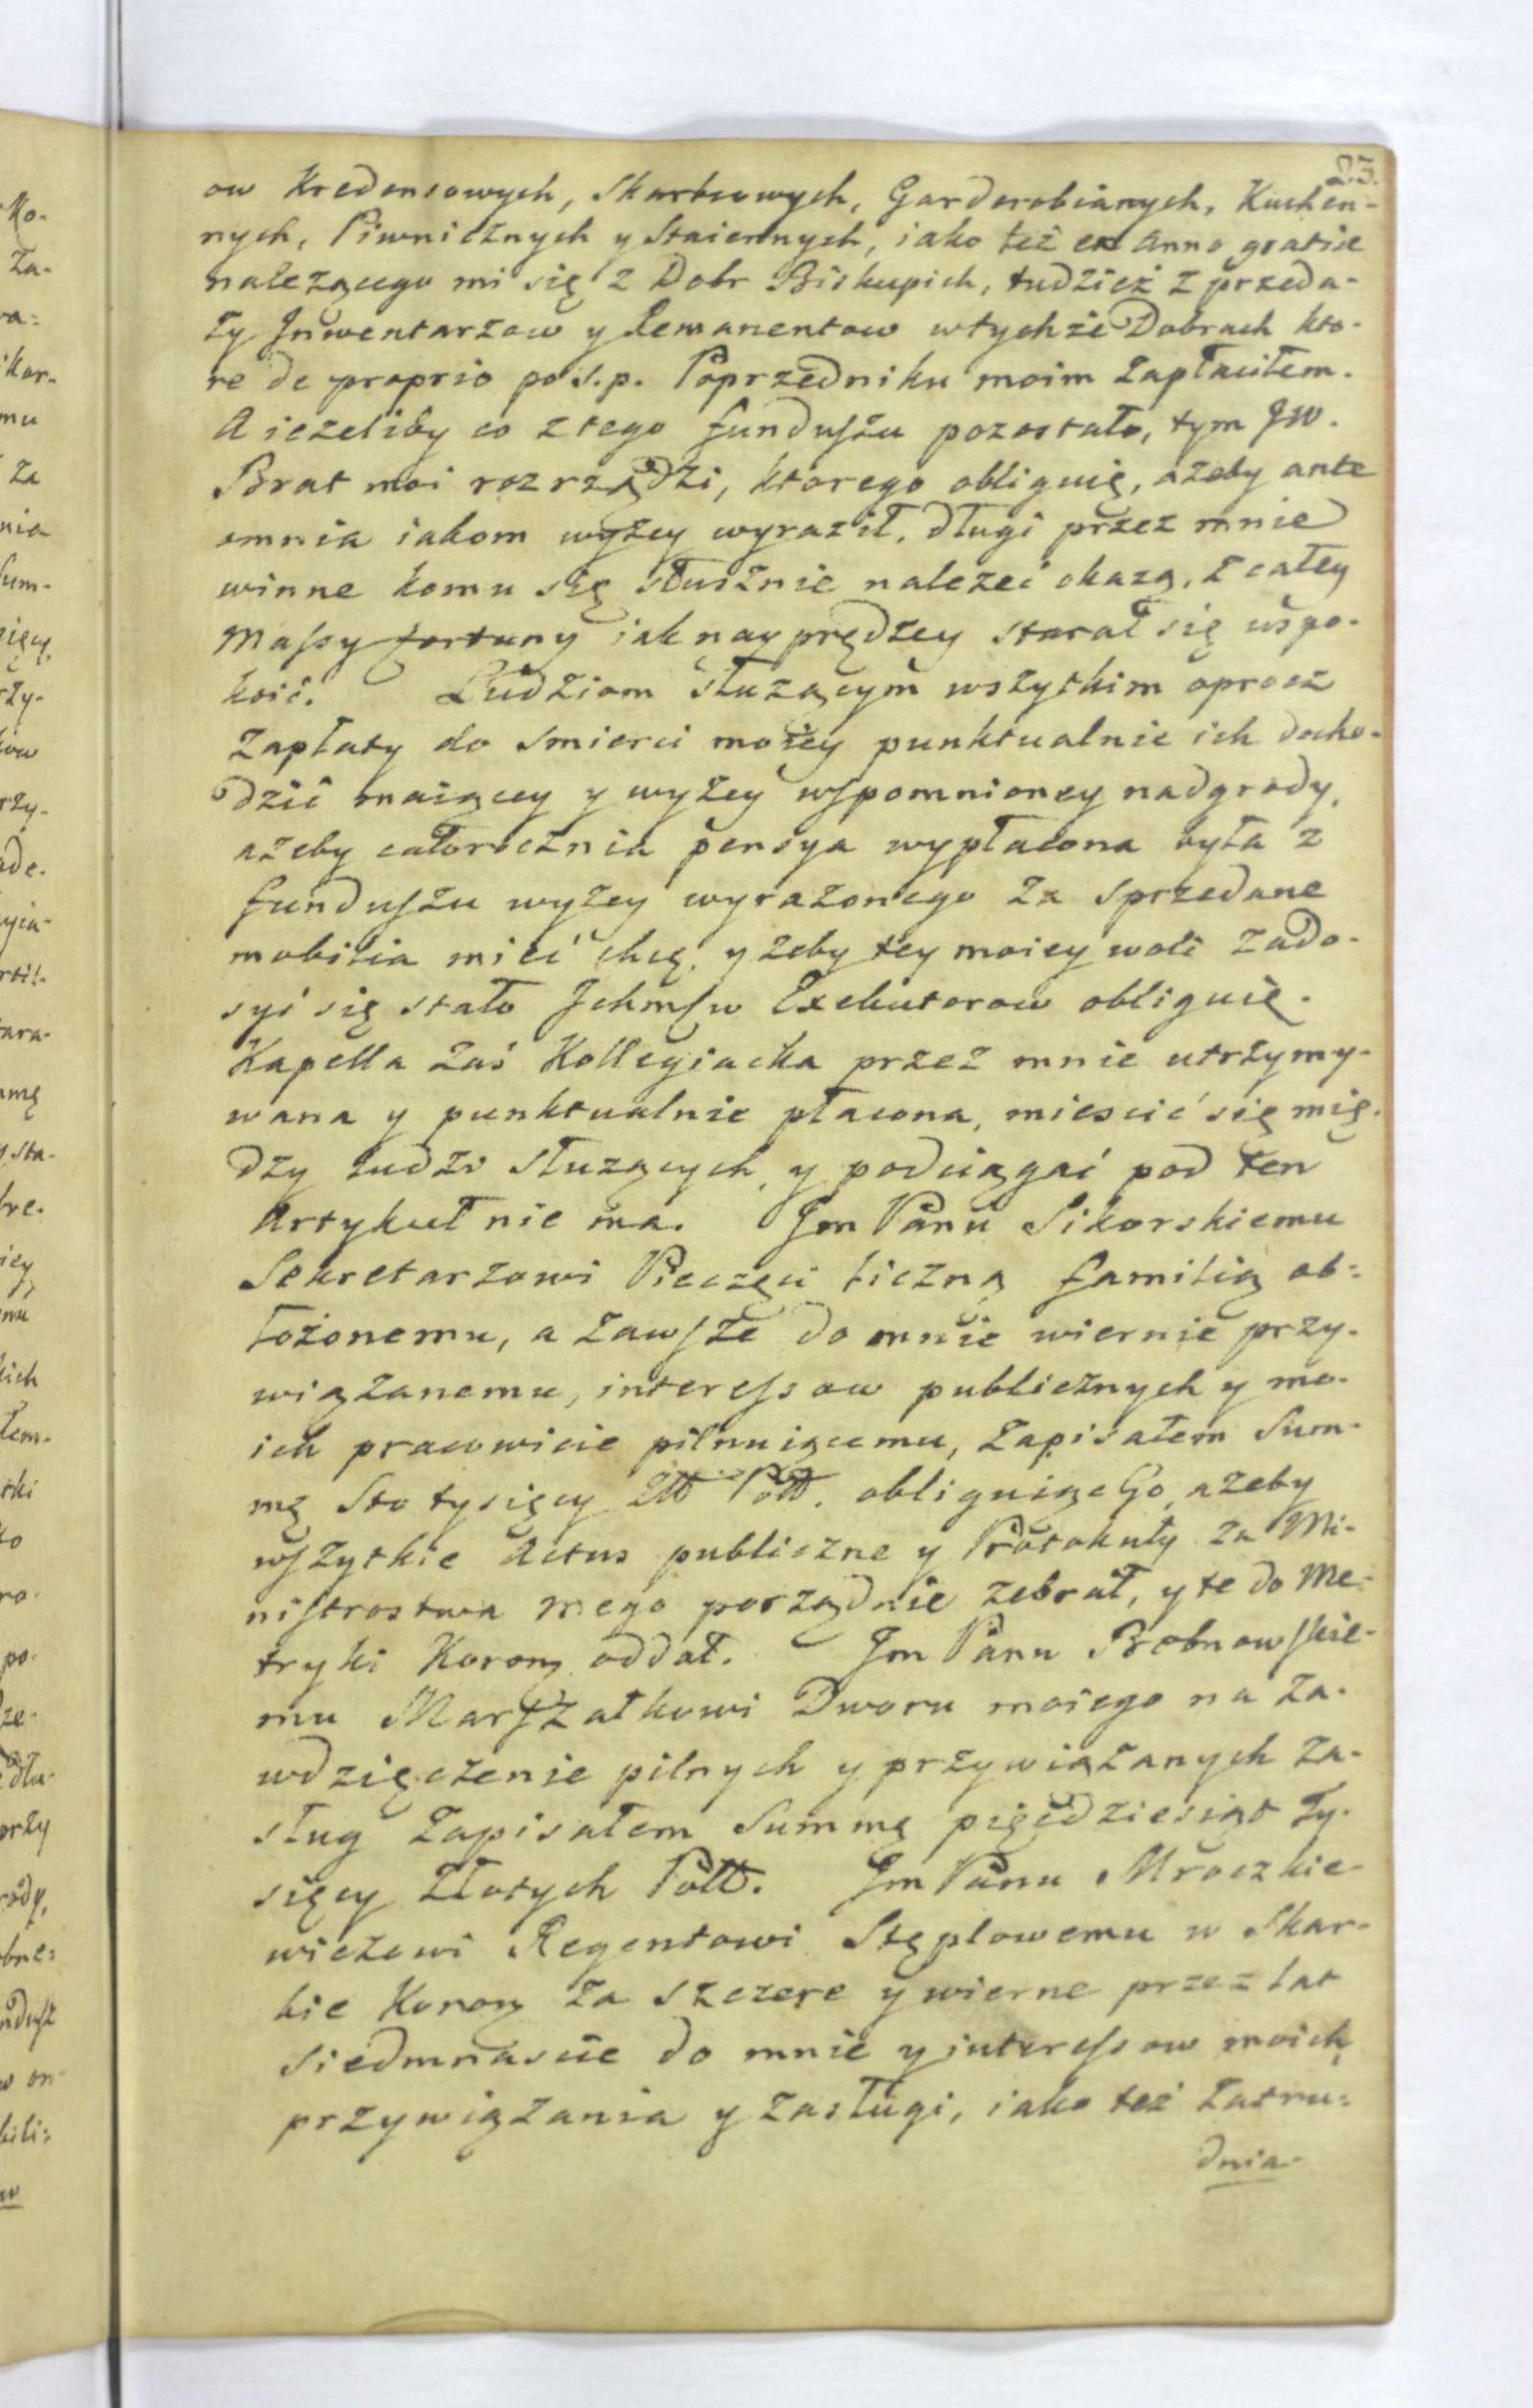 23.
ow Kredensowych, Skarbcowych, Garderobianych, Kuchen-
nych, Piwnicznych y Staiennych, iako też ex Anno gratiæ
należącego mi się z Dobr Biskupich, tudzież z przeda-
ży Inwentarzow y Remanentow wtychże Dobrach kto-
re de proprio po s. p. Poprzedniku moim zapłaciłem.
A ieżeliby co z tego funduszu pozostało, tym JW.
Brat moi rozrządzi, ktorego obliguię, ażeby ante
omnia iakom wyżey wyraził, długi przez mnie
winne komu się słusznie należeć okażą, z całey
Massy fortuny iak nayprędzey starał się uspo-
koić. Ludziom służącym wszytkim oprocz
zapłaty do smierci moiey punktualnie ich docho-
dzić maiącey y wyżey wspomnioney nadgrody,
ażeby całoroczna pensya wypłacona była z
funduszu wyżey wyrażonego za sprzedane
mobilia mieć chcę, y żeby tey moiey woli zado-
syć się stało Ichmsw Exekutorow obliguię.
Kapella zaś Kollegiacka przez mnie utrzymy-
wana y punktualnie płacona, miescić się mię-
dzy ludzi służących, y podciągać pod ten
Artykuł nie ma. Jm Panu Sikorskiemu
Sekretarzowi Pieczęci liczną familią ob-
łożonemu, a zawsze do mnie wiernie przy-
wiązanemu, interessow publicznych y mo-
ich pracowicie pilnuiącemu, zapisałem Sum-
mę Sto tysięcy Złł Poll. obliguiąc Go, ażeby
wszytkie Actus publiczne y Protokuły za Mi-
nistrostwa mego porządnie zebrał, y te do Me-
tryki Korony oddał. Jm Panu Brebnowskie-
mu Marszałkowi Dworu moiego na za-
wdzięczenie pilnych y przywiązanych za-
sług zapisałem Summę pięćdziesiąt ty-
sięcy Złotych Poll. Jm Panu Mroczkie-
wiczowi Regentowi Stęplowemu w Skar-
bie Korony za szczere y wierne przez lat
siedmnascie do mnie y interessow moich
przywiązania y zasługi, iako też zatru-
dnia-
Ko-
Za-
kar-
mu
Za
nia
Sum-
rzy-
sta-
bre-
lich
łem-
po-
przy
bne-
w on
bili-